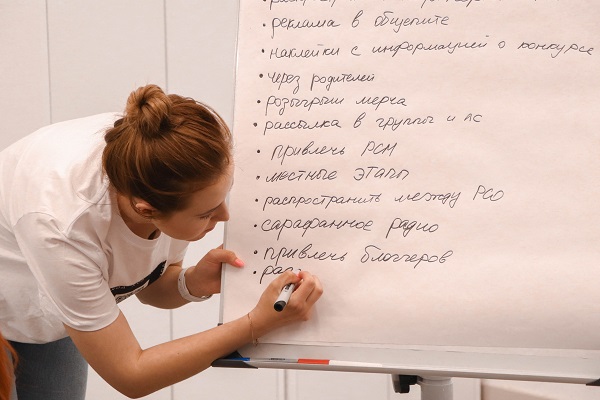 • реклама в общепите
• наклейки с информацией о конкурсе
• через родителей
• розыгрыш мерча
• рассылка в группы и АС
• привлечь РСМ
• местные этапы
• распространить между РСО
• сарафанное радио
• привлечь блоггеров